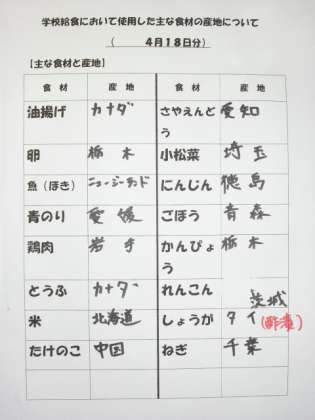 学校給食において使用した主な食材の産地について
( 4月18日分)
【主な食材と産地】
食材 産地 食材 産地
油揚げ カナダ さやえんどう 愛知
卵 栃木 小松菜 埼玉
魚(ほき) ニュージーランド にんじん 徳島
青のり 愛媛 ごぼう 青森
鶏肉 岩手 かんぴょう 栃木
とうふ カナダ れんこん 茨城
米 北海道 しょうが タイ(酢漬)
たけのこ 中国 ねぎ 千葉